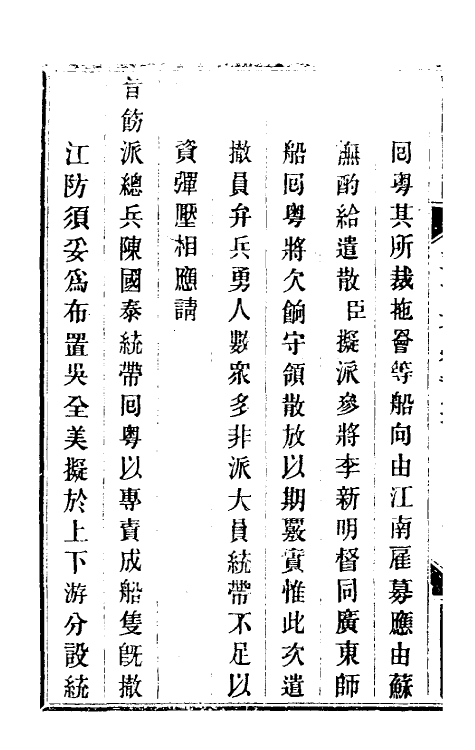 囘粤其所裁拖罾等船向由江南雇募應由蘇
撫酌給遣散臣擬派參將李新明督同廣東師
船囘粤將欠餉守領散放以期覈實惟此次遣
撤員弁兵勇人數衆多非派大員統帶不足以
資彈壓相應請
旨飭派總兵陳國泰統帶囘粤以專責成船隻旣撤
江防須妥爲布置吳全美擬於上下游分設統